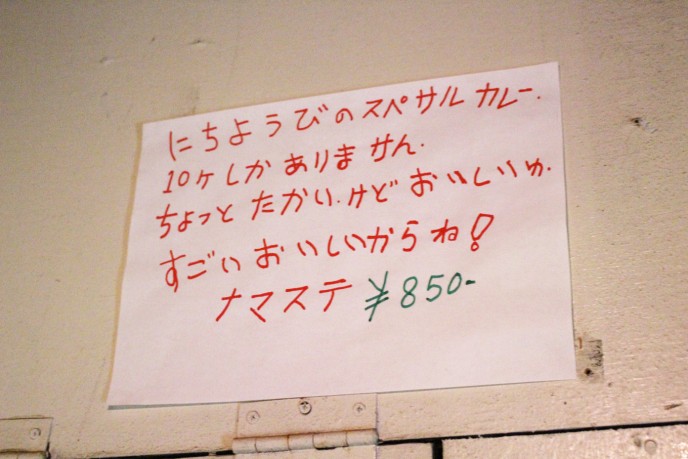 にちようびのスペサルカレー.
10ヶしかありません.
ちょっとたかい.けどおいしいゅ.
すごいおいしいからね!
ナマステ ¥850-